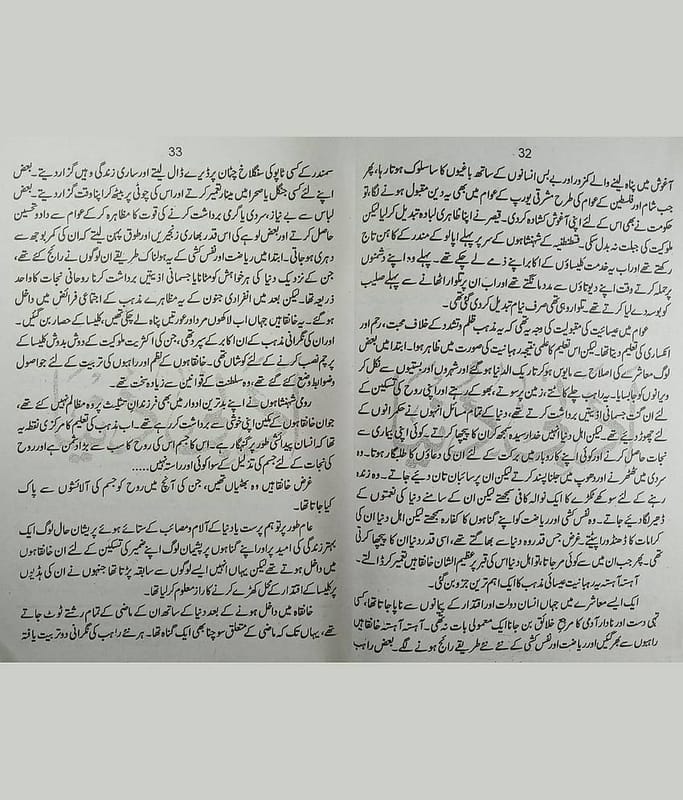 32
آغوش میں پناہ لینے والے کمزور اور بے بس انسانوں کے ساتھ باغیوں کا سا سلوک ہوتا رہا، پھر
جب شام اور فلسطین کے عوام کی طرح مشرقی یورپ کے عوام میں بھی یہ دین مقبول ہونے لگا، تو
حکومت نے بھی اس کے لئے اپنی آغوش کشادہ کر دی۔ قیصر نے اپنا ظاہری لبادہ تبدیل کر لیا لیکن
ملوکیت کی جبلت نہ بدل سکی۔ قسطنطنیہ کے شہنشاہوں کے سر پر پہلے اپالو کے مندر کے کاہن تاج
رکھتے تھے اور اب یہ خدمت کلیساؤں کے اکابر اپنے ذمے لے چکے تھے۔ پہلے وہ اپنے دشمنوں
پر حملہ کرتے وقت اپنے دیوتاؤں سے مدد مانگتے تھے اور اب ان پر تلوار اٹھانے سے پہلے صلیب
کو بوسہ دے لیا کرتے تھے۔ تلوار وہی تھی صرف نیام تبدیل کر دی گئی تھی۔
عوام میں عیسائیت کی مقبولیت کی وجہ یہ تھی کہ یہ مذہب ظلم و تشدد کے خلاف محبت، رحم اور
انکساری کی تعلیم دیتا تھا۔ لیکن اس تعلیم کا عملی نتیجہ رہبانیت کی صورت میں ظاہر ہوا۔ ابتدا میں بعض
لوگ معاشرے کی اصلاح سے مایوس ہو کر تارک الدنیا ہو گئے اور شہروں اور بستیوں سے نکل کر
ویرانوں کو جا بسایا۔ یہ راہب چلے کاٹتے، زمین پر سوتے، بھوکے رہتے اور اپنی روح کی تسکین کے
لئے ان گنت جسمانی اذیتیں برداشت کرتے تھے، دنیا کے تمام مسائل انہوں نے حکمرانوں کے
لئے چھوڑ دیئے تھے۔ لیکن اہل دنیا انہیں خدا رسیدہ سمجھ کر ان کا پیچھا کرتے، کوئی اپنی بیماری سے
نجات حاصل کرنے اور کوئی اپنے کاروبار میں برکت کے لئے ان کی دعاؤں کا طلبگار ہوتا۔ وہ
سردی میں ٹھٹھرنے اور دھوپ میں جلنا پسند کرتے لیکن ان پر سائبان تان دیئے جاتے۔ وہ زندہ
رہنے کے لئے سوکھے ٹکڑے کا ایک نوالہ کافی سمجھتے لیکن ان کے سامنے دنیا کی نعمتوں کے
ڈھیر لگا دیئے جاتے۔ وہ نفس کشی اور ریاضت کو اپنے گناہوں کا کفارہ سمجھتے لیکن اہل دنیا ان کی
کرامات کا ڈھنڈورا پیٹتے۔ غرض جس قدر وہ دنیا سے بھاگتے تھے، اسی قدر دنیا ان کا پیچھا کرتی
تھی۔ پھر جب ان میں سے کوئی مر جاتا، تو اہل دنیا اس کی قبر پر عظیم الشان خانقاہیں تعمیر کر ڈالتے۔
آہستہ آہستہ یہ رہبانیت عیسائی مذہب کا ایک اہم ترین جزو بن گئی۔
ایک ایسے معاشرے میں جہاں انسان دولت اور اقتدار کے پیمانوں سے ناپا جاتا تھا، کسی
تہی دست اور نادار آدمی کا مرجع خلائق بن جانا ایک معمولی بات نہ تھی۔ آہستہ آہستہ خانقاہیں
راہبوں سے بھر گئیں اور ریاضت اور نفس کشی کے نئے نئے طریقے رائج ہونے لگے۔ بعض راہب
33
سمندر کے کسی ٹاپو کی سنگلاخ چٹان پر ڈیرے ڈال لیتے اور ساری زندگی وہیں گزار دیتے۔ بعض
اپنے لئے کسی جنگل یا صحرا میں مینار تعمیر کرتے اور اس کی چوٹی پر بیٹھ کر اپنا وقت گزار دیتے۔ بعض
لباس سے بے نیاز، سردی یا گرمی برداشت کرنے کی قوت کا مظاہرہ کر کے عوام سے داد و تحسین
حاصل کرتے اور بعض لوہے کی اس قدر بھاری زنجیریں اور طوق پہن لیتے کہ ان کی کمر بوجھ سے
دہری ہو جاتی۔ ابتدا میں ریاضت اور نفس کشی کے یہ ہولناک طریقے ان لوگوں نے رائج کئے تھے،
جن کے نزدیک دنیا کی ہر خواہش کو مٹانا یا جسمانی اذیتیں برداشت کرنا روحانی نجات کا واحد
ذریعہ تھا۔ لیکن بعد میں انفرادی جنون کے یہ مظاہرے مذہب کے اجتماعی فرائض میں داخل
ہو گئے۔ یہ خانقاہیں جہاں اب لاکھوں مرد اور عورتیں پناہ لے چکی تھیں، کلیسا کے حصار بن گئیں۔
اور ان کی نگرانی مذہب کے ان اکابر کے سپرد تھی، جن کی اکثریت ملوکیت کے دوش بدوش کلیسا کے
پرچم نصب کرنے کے لئے کوشاں تھی۔ خانقاہوں کے نظم اور راہبوں کی تربیت کے لئے جو اصول
و ضوابط وضع کئے گئے تھے، وہ سلطنت کے قوانین سے زیادہ سخت تھے۔
رومی شہنشاہوں نے اپنے بدترین ادوار میں بھی فرزندان تثلیث پر وہ مظالم نہیں کئے تھے،
جو ان خانقاہوں کے مکین اپنی خوشی سے برداشت کر رہے تھے۔ اب مذہب کی تعلیم کا مرکزی نقطہ یہ
تھا کہ انسان پیدائشی طور پر گنہگار ہے۔ اس کا جسم اس کی روح کا سب سے بڑا دشمن ہے اور روح
کی نجات کے لئے جسم کی تذلیل کے سوا کوئی اور راستہ نہیں.....
غرض خانقاہیں وہ بھٹیاں تھیں، جن کی آنچ میں روح کو جسم کی آلائشوں سے پاک
کیا جاتا تھا۔
عام طور پر توہم پرست یا دنیا کے آلام و مصائب کے ستائے ہوئے پریشان حال لوگ ایک
بہتر زندگی کی امید پر اور اپنے گناہوں پر پشیمان لوگ اپنے ضمیر کی تسکین کے لئے ان خانقاہوں
میں داخل ہوتے تھے لیکن یہاں انہیں ایسے لوگوں سے سابقہ پڑتا تھا جنہوں نے ان کی ہڈیوں
پر کلیسا کے اقتدار کے محل کھڑے کرنے کا راز معلوم کر لیا تھا۔
خانقاہ میں داخل ہونے کے بعد دنیا کے ساتھ ان کے ماضی کے تمام رشتے ٹوٹ جاتے
تھے، یہاں تک کہ ماضی کے متعلق سوچنا بھی ایک گناہ تھا۔ ہر نئے راہب کی نگرانی وہ تربیت یافتہ